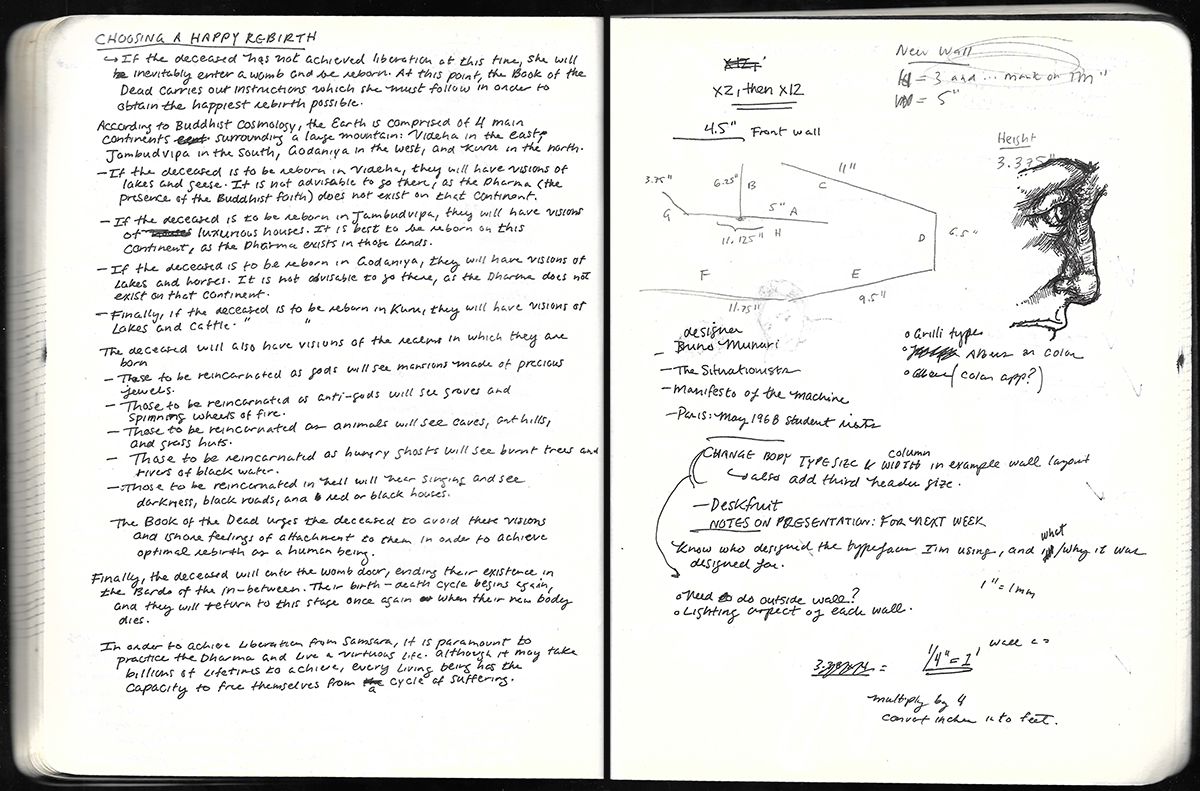 CHOOSING A HAPPY REBIRTH
↳ If the deceased has not achieved liberation at this time, she will
inevitably enter a womb and be reborn. At this point, the Book of the
Dead carries out instructions which she must follow in order to
obtain the happiest rebirth possible.
According to Buddhist Cosmology, the Earth is comprised of 4 main
continents surrounding a large mountain: Videha in the east,
Jambudvipa in the South, Godaniya in the west, and Kuru in the north.
- If the deceased is to be reborn in Videha, they will have visions of
lakes and geese. It is not advisable to go there, as the Dharma (the
presence of the Buddhist faith) does not exist on that continent.
- If the deceased is to be reborn in Jambudvipa, they will have visions
of luxurious houses. It is best to be reborn on this
continent, as the Dharma exists in those lands.
- If the deceased is to be reborn in Godaniya, they will have visions of
Lakes and horses. It is not advisable to go there, as the Dharma does not
exist on that continent.
- Finally, if the deceased is to be reborn in Kuru, they will have visions of
Lakes and Cattle. " "
The deceased will also have visions of the realms in which they are
born
- Those to be reincarnated as gods will see mansions made of precious
jewels.
- Those to be reincarnated as anti-gods will see groves and
spinning wheels of fire.
- Those to be reincarnated as animals will see caves, ant hills,
and grass huts.
- Those to be reincarnated as hungry ghosts will see burnt trees and
rivers of black water.
- Those to be reincarnated in hell will hear singing and see
darkness, black roads, and red or black houses.
The Book of the Dead urges the deceased to avoid these visions
and ignore feelings of attachment to them in order to achieve
optimal rebirth as a human being.
Finally, the deceased will enter the womb door, ending their existence in
the Bardo of the in-between. Their birth-death cycle begins again,
and they will return to this stage once again when their new body
dies.
In order to achieve liberation from Samsara, it is paramount to
practice the Dharma and live a virtuous life. Although it may take
billions of lifetimes to achieve, every living being has the
capacity to free themselves from a cycle of suffering.
x2, then x12
4.5" Front wall
New Wall
= 3 and ... mark on 1m"
= 5"
Height
3.375"
3.75"
6.25"
B
C
11"
G
5"
A
11.125"
H
D
6.5"
F
E
11.75"
9.5"
designer
- Bruno Munari
- The Situationists
- Manifesto of the machine
- Paris: May 1968 student riots
o Grilli type
o Albers on color
o (color app?)
CHANGE BODY TYPE SIZE & column WIDTH in example wall layout
↳ also add third header size.
- Deskfruit
NOTES ON PRESENTATION: FOR NEXT WEEK
Know who designed the typeface I'm using, and what/why it was
designed for.
1" = 1mm
o Need to do outside wall?
o Lighting aspect of each wall.
= 1/4" = 1'
multiply by 4
convert inches into feet.